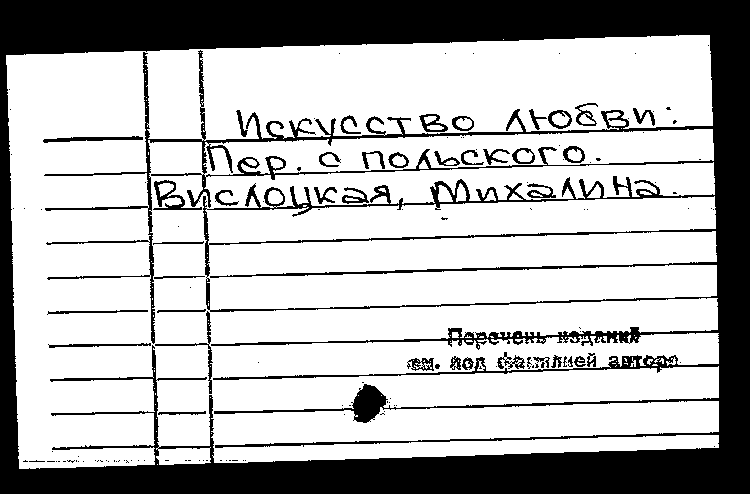 Искусство любви:
Пер. с польского.
Вислоцкая, Михалина.
Перечень изданий
см. под фамилией автора